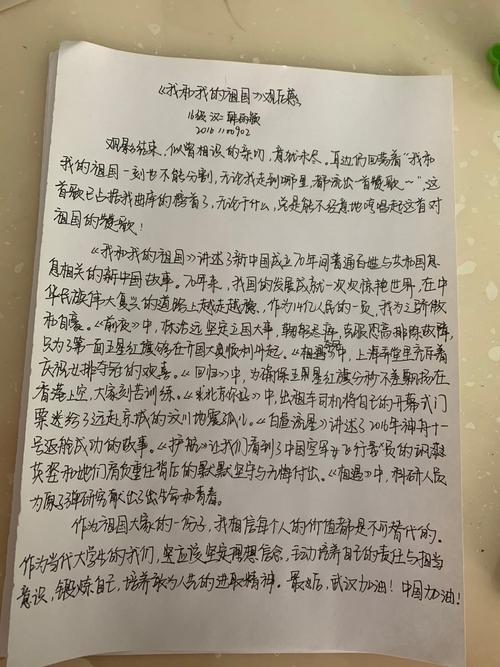 《我和我的祖国》观后感
16级 汉二
20161100902
观影结束，似曾相识的亲切，意犹未尽。耳边仍回荡着“我和
我的祖国一刻也不能分割，无论我走到哪里都流出一首赞歌～”，这
首歌已占据我曲库的榜首了，无论干什么，总是能不经意地哼唱起这首对
祖国的赞歌！
《我和我的祖国》讲述了新中国成立70年间普通百姓与共和国息
息相关的新中国故事。70年来，我国的发展成就一次次惊艳世界，在中
华民族伟大复兴的道路上越走越稳，作为14亿人民的一员，我为之骄傲
和自豪。《前夜》中，林治远坚定立国大事，克服恐高排除故障，
只为了第一面五星红旗能够在开国大典顺利升起。《相遇》中，上海弄堂里充斥着
庆祝女排夺冠的欢喜。《回归》中，为确保五星红旗分秒不差飘扬在
香港上空，大家刻苦训练。《北京你好》中，出租车司机将自己的开幕式门
票送给了远赴京城的汶川地震孤儿。《白昼流星》讲述了2016年神舟十一
号返航成功的故事。《护航》让我们看到了中国空军女飞行员的飒爽
英姿和她们肩负重任背后的默默坚守与无悔付出。《相遇》中，科研人员
为原子弹研究献出了生命和青春。
作为祖国大家的一份子，我相信每个人的价值都是不可替代的。
作为当代大学生的我们，更应该坚定理想信念，主动培养自己的责任与担当
意识，锻炼自己，培养敢为人先的进取精神。最后，武汉加油！中国加油！